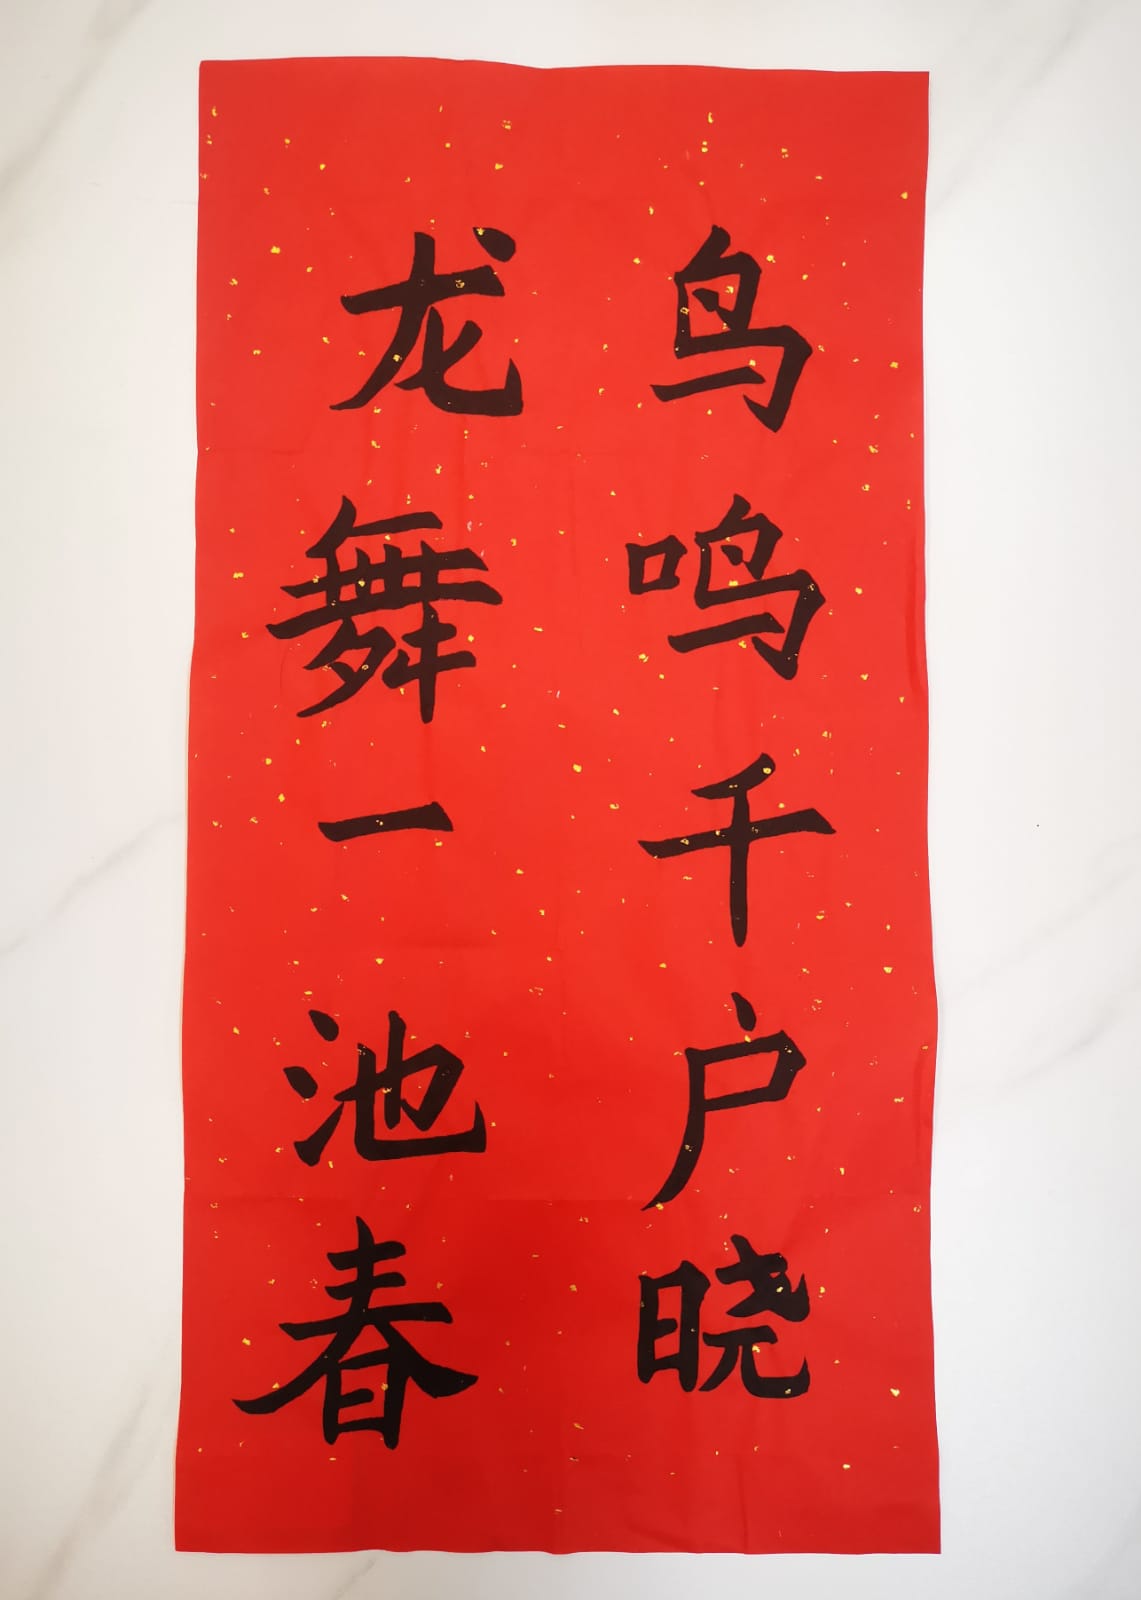 鸟鸣千户晓
龙舞一池春